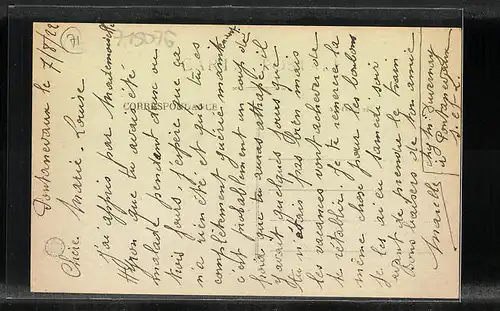 Pontanevaux le 7/8/22
Chère Marie-Louise
J'ai appris par Mademoiselle
que tu avais été
malade pendant deux ou
trois jours, j'espère que ça
n'a rien été et que tu es
complètement guérie maintenant
c'est probablement un coup de
froid que tu auras attrapé, il
y avait quelques jours que
tu n'étais pas bien mais
les vacances vont achever de
te rétablir. Je te remercie la
même chose pour les bonbons
je les ai eu samedi soir
avant de prendre le train
Bons baisers de ton amie
Marcelle
chez Mr
à Pontanevaux
S. et L.
CORRESPONDANCE